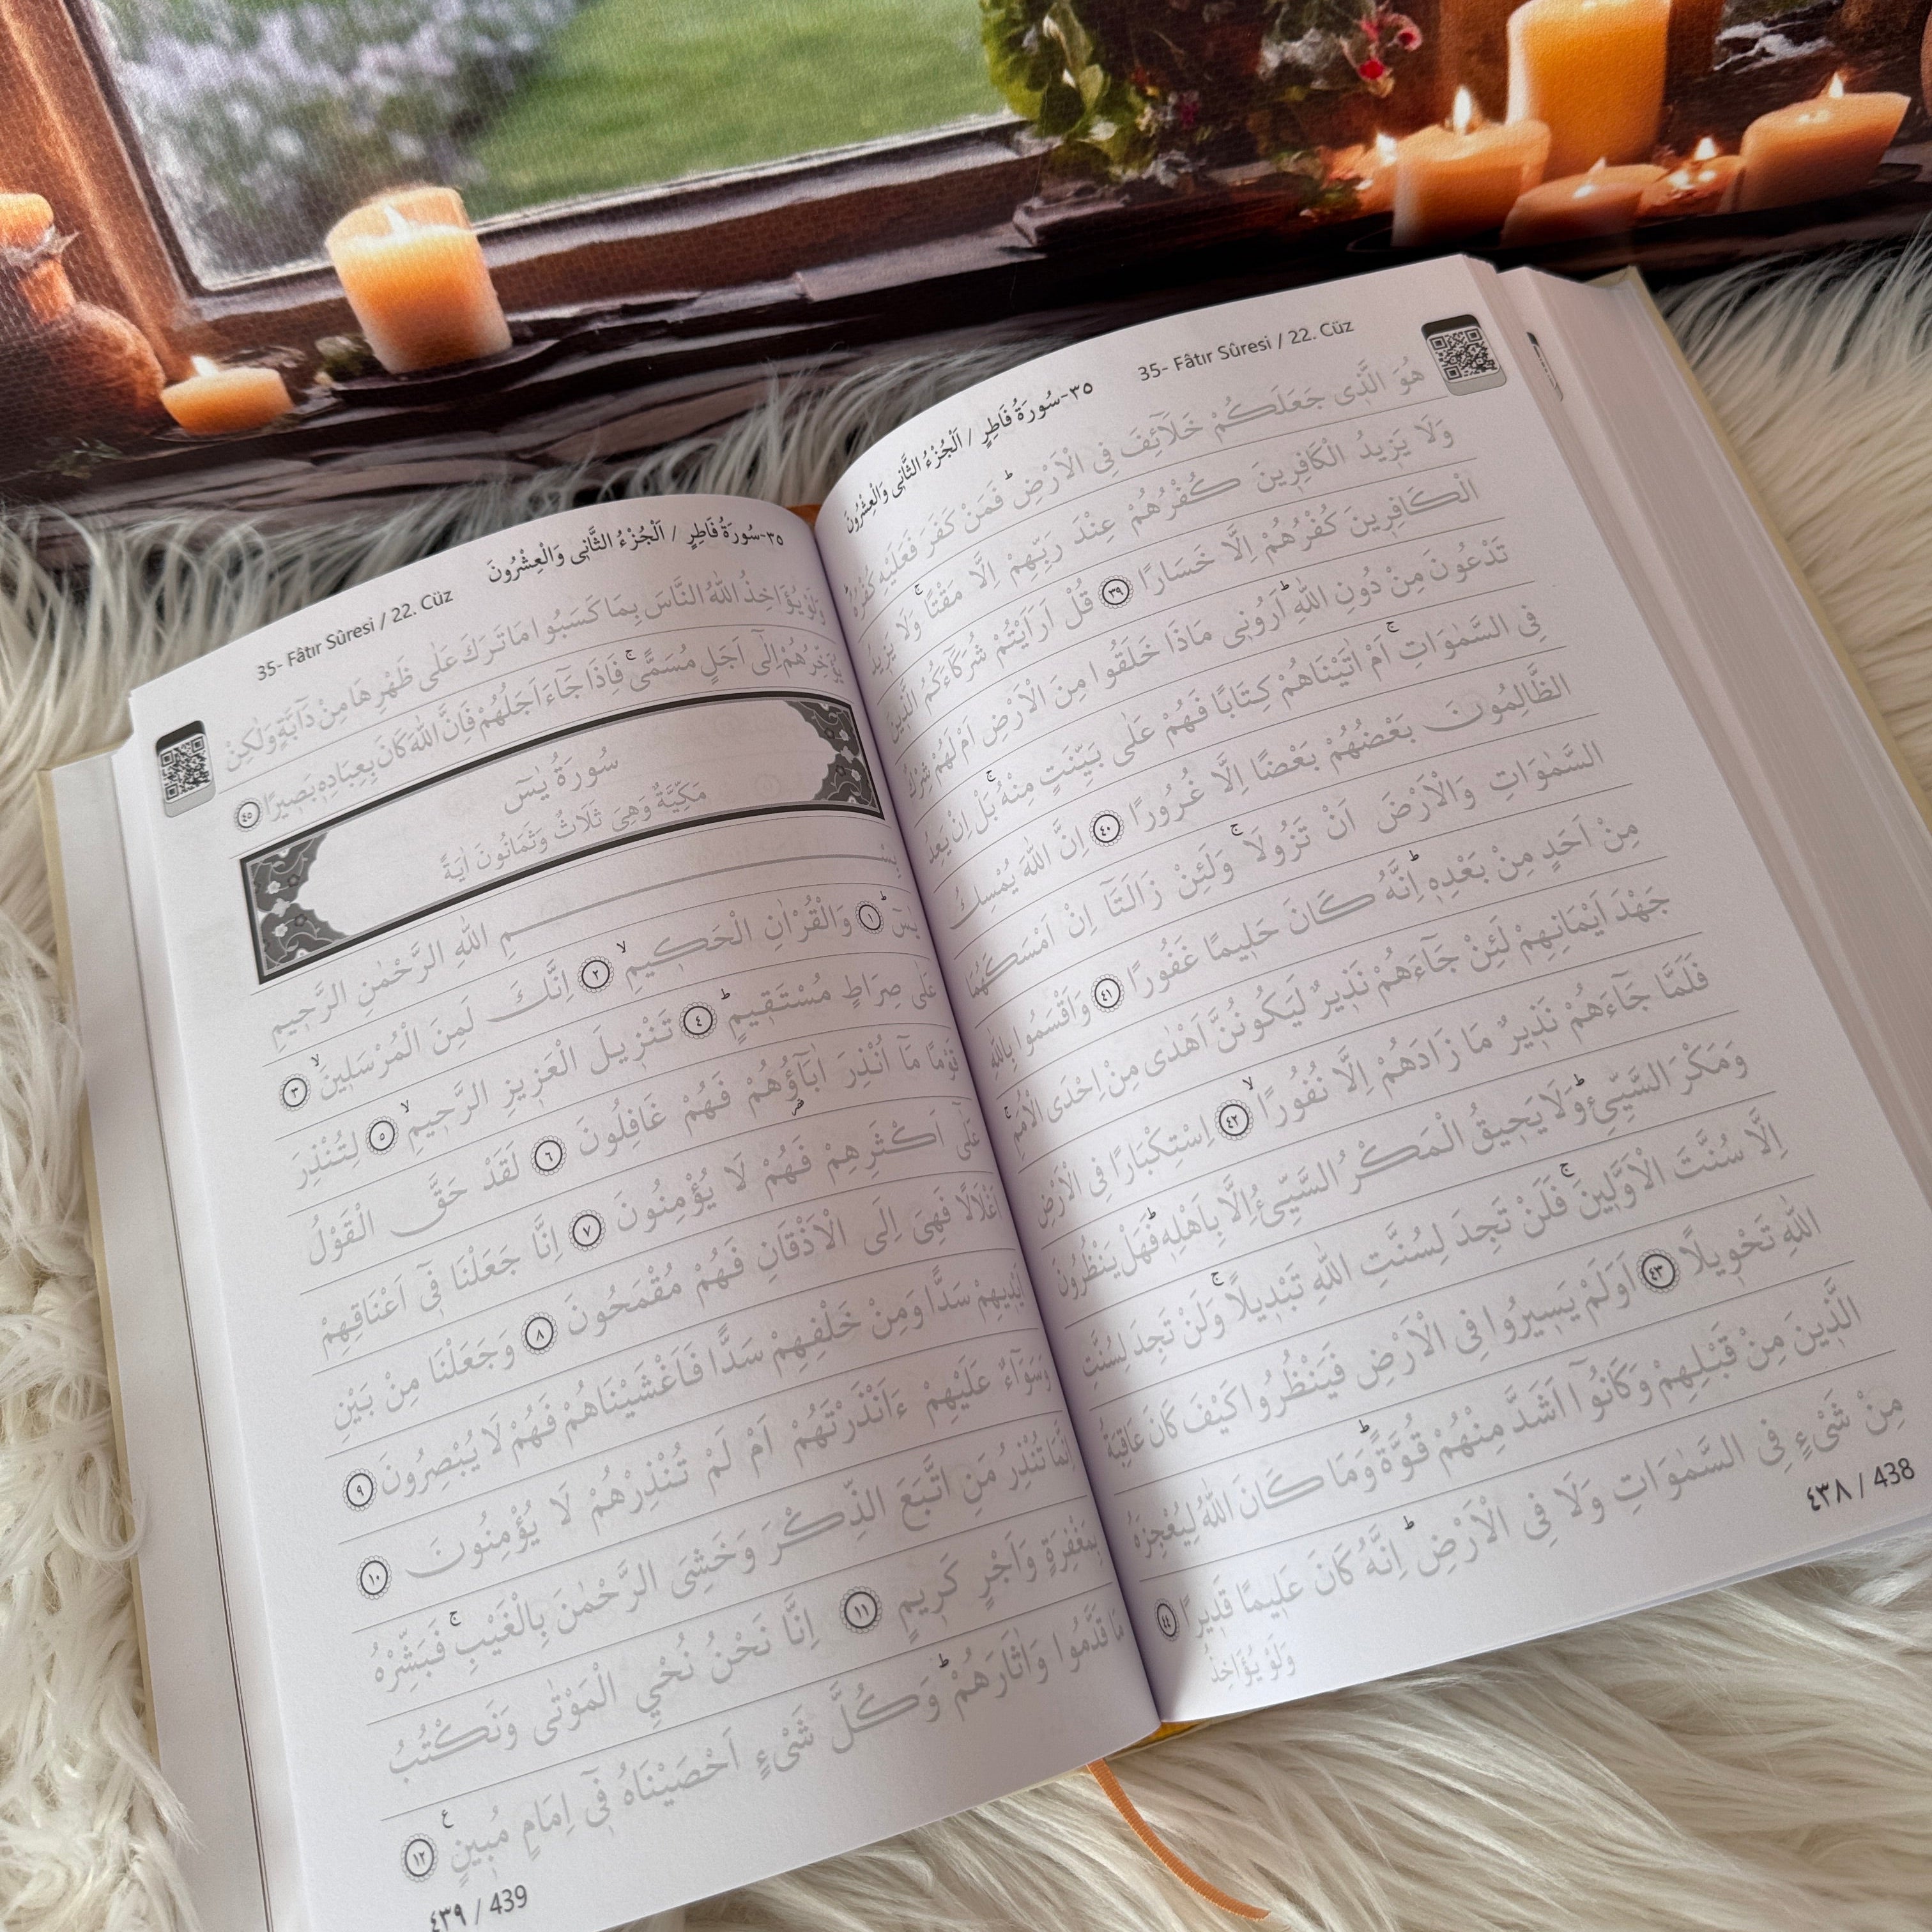 ٣٥-سُورَةُ فَاطِرٍ / اَلْجُزْءُ الثَّانِى وَالْعِشْرُونَ
35- Fâtır Sûresi / 22. Cüz
هُوَ الَّذِى جَعَلَكُمْ خَلَٓائِفَ فِى الْاَرْضِۜ فَمَنْ كَفَرَ فَعَلَيْهِ كُفْرُهُۜ
وَلَا يَزِيدُ الْكَافِرِينَ كُفْرُهُمْ عِنْدَ رَبِّهِمْ اِلَّا مَقْتًاۚ وَلَا يَزِيدُ
الْكَافِرِينَ كُفْرُهُمْ اِلَّا خَسَارًا ٣٩ قُلْ اَرَاَيْتُمْ شُرَكَٓاءَكُمُ الَّذِينَ
تَدْعُونَ مِنْ دُونِ اللّٰهِۜ اَرُونِى مَاذَا خَلَقُوا مِنَ الْاَرْضِ اَمْ لَهُمْ شِرْكٌ
فِى السَّمٰوَاتِۚ اَمْ اٰتَيْنَاهُمْ كِتَابًا فَهُمْ عَلٰى بَيِّنَتٍ مِنْهُۚ بَلْ اِنْ يَعِدُ
الظَّالِمُونَ بَعْضُهُمْ بَعْضًا اِلَّا غُرُورًا ٤٠ اِنَّ اللّٰهَ يُمْسِكُ
السَّمٰوَاتِ وَالْاَرْضَ اَنْ تَزُولَاۚ وَلَئِنْ زَالَتَٓا اِنْ اَمْسَكَهُمَا
مِنْ اَحَدٍ مِنْ بَعْدِهِۜ اِنَّهُ كَانَ حَلِيمًا غَفُورًا ٤١ وَاَقْسَمُوا بِاللّٰهِ
جَهْدَ اَيْمَانِهِمْ لَئِنْ جَٓاءَهُمْ نَذِيرٌ لَيَكُونُنَّ اَهْدٰى مِنْ اِحْدَى الْاُمَمِۚ
فَلَمَّا جَٓاءَهُمْ نَذِيرٌ مَا زَادَهُمْ اِلَّا نُفُورًاۙ ٤٢ اِسْتِكْبَارًا فِى الْاَرْضِ
وَمَكْرَ السَّيِّئِۜ وَلَا يَحِيقُ الْمَكْرُ السَّيِّئُ اِلَّا بِاَهْلِهِۜ فَهَلْ يَنْظُرُونَ
اِلَّا سُنَّتَ الْاَوَّلِينَۚ فَلَنْ تَجِدَ لِسُنَّتِ اللّٰهِ تَبْدِيلًاۚ وَلَنْ تَجِدَ لِسُنَّتِ
اللّٰهِ تَحْوِيلًا ٤٣ اَوَلَمْ يَسِيرُوا فِى الْاَرْضِ فَيَنْظُرُوا كَيْفَ كَانَ عَاقِبَةُ
الَّذِينَ مِنْ قَبْلِهِمْ وَكَانُٓوا اَشَدَّ مِنْهُمْ قُوَّةًۜ وَمَا كَانَ اللّٰهُ لِيُعْجِزَهُ
مِنْ شَىْءٍ فِى السَّمٰوَاتِ وَلَا فِى الْاَرْضِۜ اِنَّهُ كَانَ عَلِيمًا قَدِيرًا ٤٤
وَلَوْ يُؤَاخِذُ
٤٣٨ / 438
٣٥-سُورَةُ فَاطِرٍ / اَلْجُزْءُ الثَّانِى وَالْعِشْرُونَ
35- Fâtır Sûresi / 22. Cüz
وَلَوْ يُؤَاخِذُ اللّٰهُ النَّاسَ بِمَا كَسَبُوا مَا تَرَكَ عَلٰى ظَهْرِهَا مِنْ دَٓابَّةٍ وَلٰكِنْ
يُؤَخِّرُهُمْ اِلٰٓى اَجَلٍ مُسَمًّىۚ فَاِذَا جَٓاءَ اَجَلُهُمْ فَاِنَّ اللّٰهَ كَانَ بِعِبَادِهِ بَصِيرًا ٤٥
سُورَةُ يٰسٓ
مَكِّيَّةٌ وَهِىَ ثَلَاثٌ وَثَمَانُونَ اٰيَةً
بِسْمِ اللّٰهِ الرَّحْمٰنِ الرَّحِيمِ
يٰسٓۜ ١ وَالْقُرْاٰنِ الْحَكِيمِۙ ٢ اِنَّكَ لَمِنَ الْمُرْسَلِينَۙ ٣
عَلٰى صِرَاطٍ مُسْتَقِيمٍۜ ٤ تَنْزِيلَ الْعَزِيزِ الرَّحِيمِۙ ٥ لِتُنْذِرَ
قَوْمًا مَٓا اُنْذِرَ اٰبَٓاؤُهُمْ فَهُمْ غَافِلُونَ ٦ لَقَدْ حَقَّ الْقَوْلُ
عَلٰٓى اَكْثَرِهِمْ فَهُمْ لَا يُؤْمِنُونَ ٧ اِنَّا جَعَلْنَا فِٓى اَعْنَاقِهِمْ
اَغْلَالًا فَهِىَ اِلَى الْاَذْقَانِ فَهُمْ مُقْمَحُونَ ٨ وَجَعَلْنَا مِنْ بَيْنِ
اَيْدِيهِمْ سَدًّا وَمِنْ خَلْفِهِمْ سَدًّا فَاَغْشَيْنَاهُمْ فَهُمْ لَا يُبْصِرُونَ ٩
وَسَوَٓاءٌ عَلَيْهِمْ ءَاَنْذَرْتَهُمْ اَمْ لَمْ تُنْذِرْهُمْ لَا يُؤْمِنُونَ ١٠
اِنَّمَا تُنْذِرُ مَنِ اتَّبَعَ الذِّكْرَ وَخَشِىَ الرَّحْمٰنَ بِالْغَيْبِۚ فَبَشِّرْهُ
بِمَغْفِرَةٍ وَاَجْرٍ كَرِيمٍ ١١ اِنَّا نَحْنُ نُحْيِ الْمَوْتٰى وَنَكْتُبُ
مَا قَدَّمُوا وَاٰثَارَهُمْۜ وَكُلَّ شَىْءٍ اَحْصَيْنَاهُ فِٓى اِمَامٍ مُبِينٍ ١٢ ع
٤٣٩ / 439